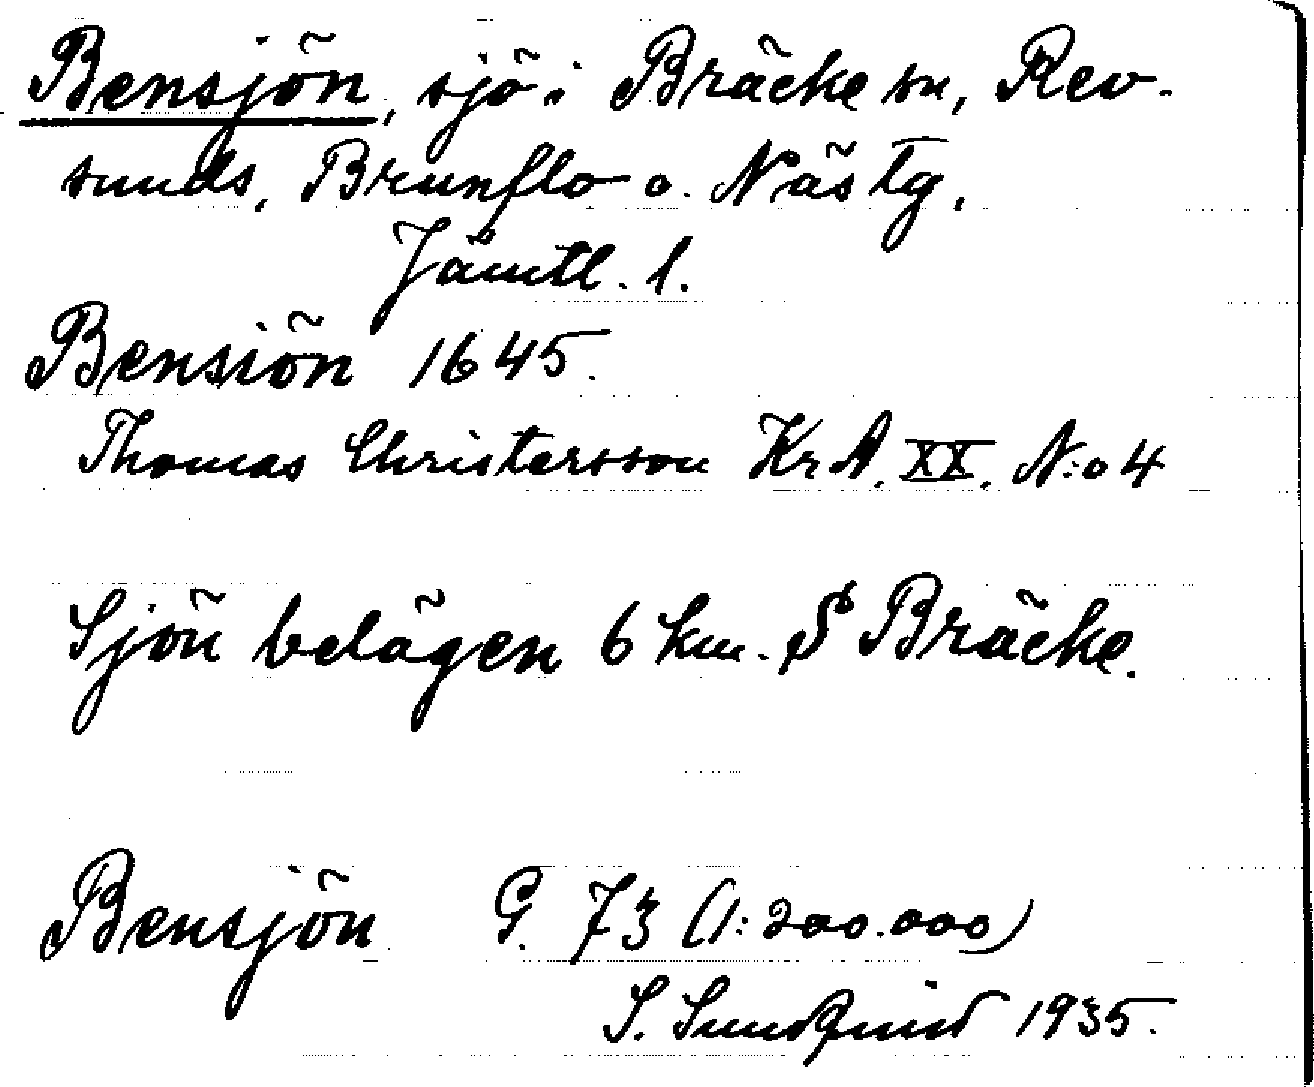 Bensjön, sjö i Bräcke sn, Rev-
sunds, Brunflo o. Näs tg,
Jämtl. l.
Bensiön 1645.
Thomas Christersson KrA. XX. N:o 4
Sjön belägen 6 km. S Bräcke.
Bensjön G. 73 (1:200.000)
S. Sundquist 1935.